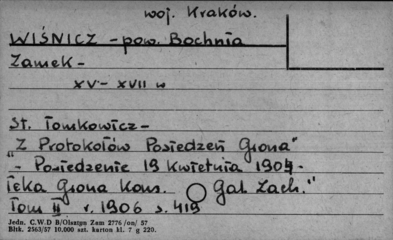 woj. Kraków.
WIŚNICZ - pow. Bochnia
Zamek -
XV - XVII w
St. Tomkowicz -
"Z Protokołów Posiedzeń Grona"
" - Posiedzenie 19 Kwietnia 1904 -
Teka Grona Kons. Gal. Zach."
Tom II r. 1906 s. 419
Jedn. C.W.D B/Olsztyn Zam 2776 /on/ 57
Bltk. 2563/57 10.000 szt. karton kl. 7 g 220.